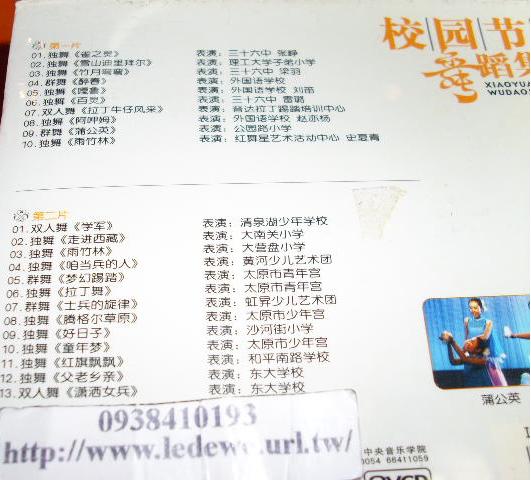 校园节
舞蹈集
XIAOYUA
WUDAO
第一片
01.独舞《雀之灵》 表演：三十六中 张峥
02.独舞《雪山迪里拜尔》 表演：理工大学子弟小学
03.独舞《竹月弯弯》 表演：三十六中 梁羽
04.群舞《醉春》 表演：外国语学校
05.独舞《嘎鲁》 表演：外国语学校 刘苗
06.独舞《百灵》 表演：三十六中 雷璐
07.双人舞《拉丁牛仔风采》 表演：音达拉丁踢踏培训中心
08.独舞《阿呷姆》 表演：外国语学校 赵亦杨
09.群舞《蒲公英》 表演：公园路小学
10.独舞《雨竹林》 表演：红舞星艺术活动中心 史夏青
第二片
01.双人舞《学军》 表演：清泉湖少年学校
02.独舞《走进西藏》 表演：大南关小学
03.独舞《雨竹林》 表演：大营盘小学
04.独舞《咱当兵的人》 表演：黄河少儿艺术团
05.群舞《梦幻踢踏》 表演：太原市青年宫
06.独舞《拉丁舞》 表演：太原市青年宫
07.群舞《士兵的旋律》 表演：虹昇少儿艺术团
08.独舞《腾格尔草原》 表演：太原市少年宫
09.独舞《好日子》 表演：沙河街小学
10.独舞《童年梦》 表演：太原市少年宫
11.独舞《红旗飘飘》 表演：和平南路学校
12.独舞《父老乡亲》 表演：东大学校
13.双人舞《潇洒女兵》 表演：东大学校
蒲公英
0938410193
http://www.ledewe.url.tw/
中央音乐学院
0054 66411059